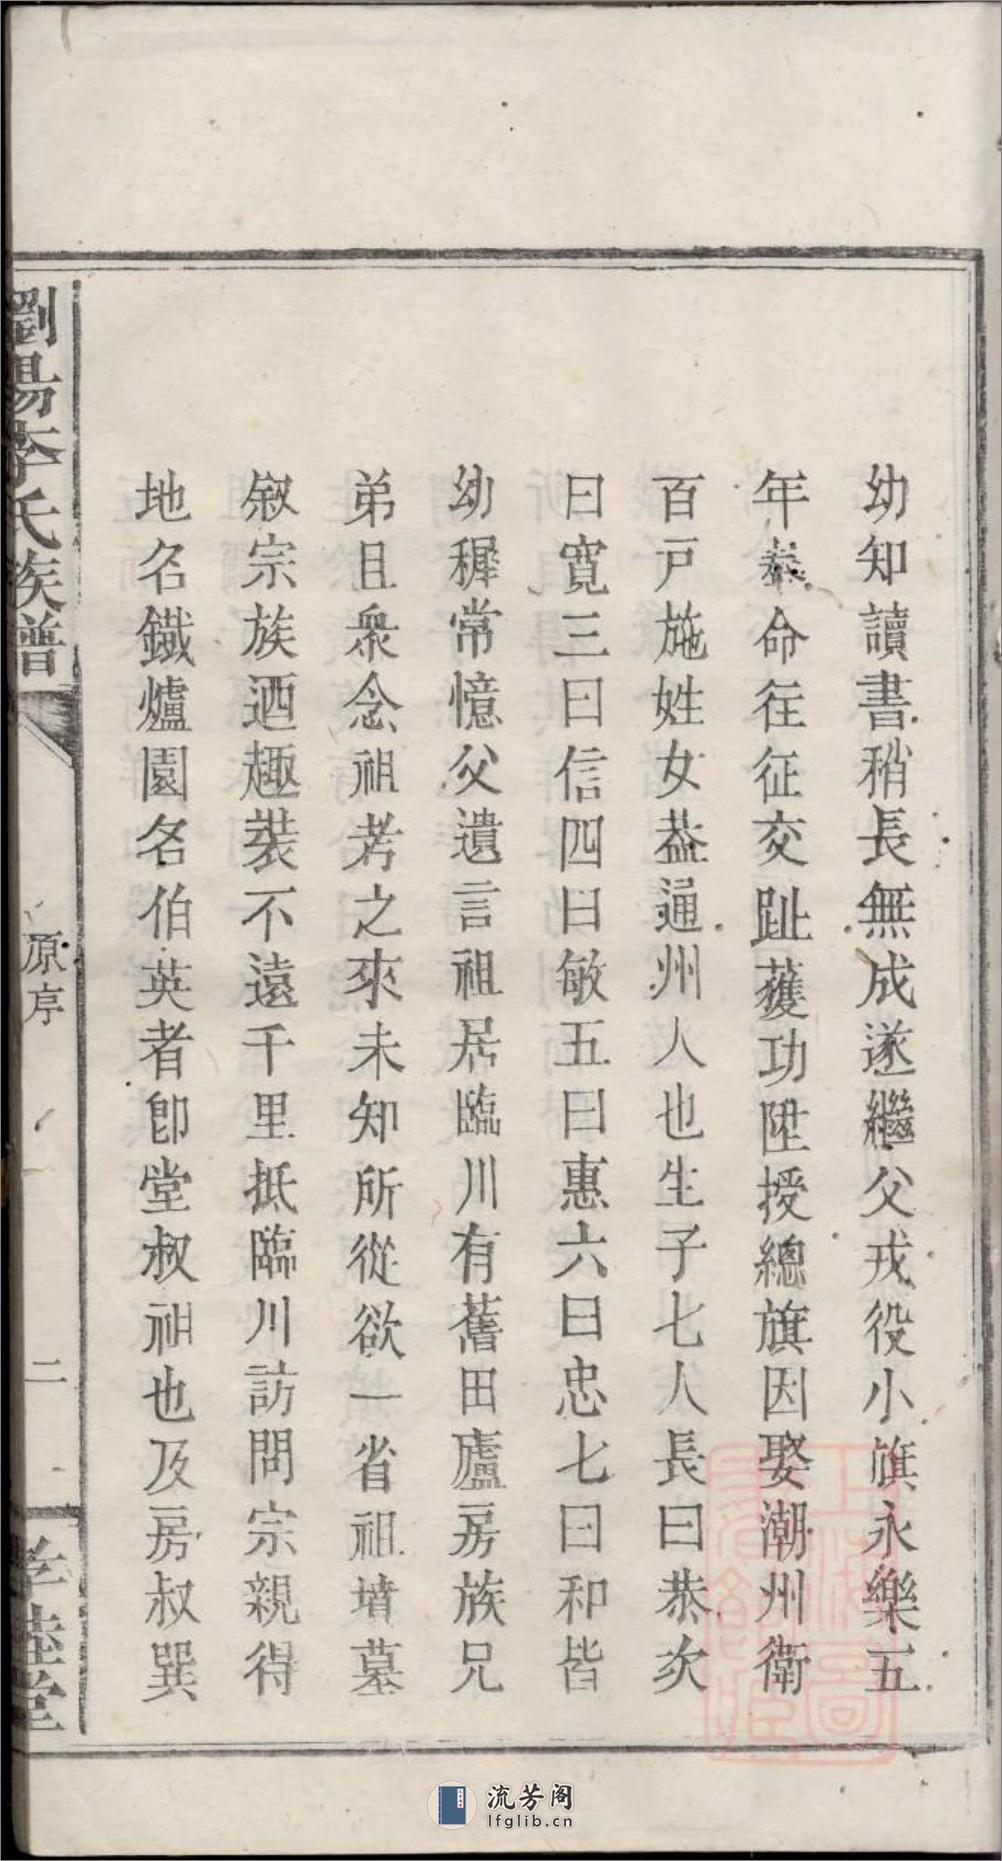 幼知讀書稍長無成遂繼父戎役小旗永樂五
年奉命徃征交趾獲功陞授總旗因娶潮州衛
百戸施姓女葢通州人也生子七人長曰恭次
曰寬三曰信四曰敏五曰惠六曰忠七曰和皆
幼穉常憶父遺言祖居臨川有舊田廬房族兄
弟且衆念祖考之來未知所從欲一省祖墳墓
叙宗族迺趣裝不遠千里抵臨川訪問宗親得
地名鐵爐園名伯英者卽堂叔祖也及房叔巽
劉陽李氏族譜
原序
二
孝睦堂
上海圖書館藏
流芳阁
lfglib.cn